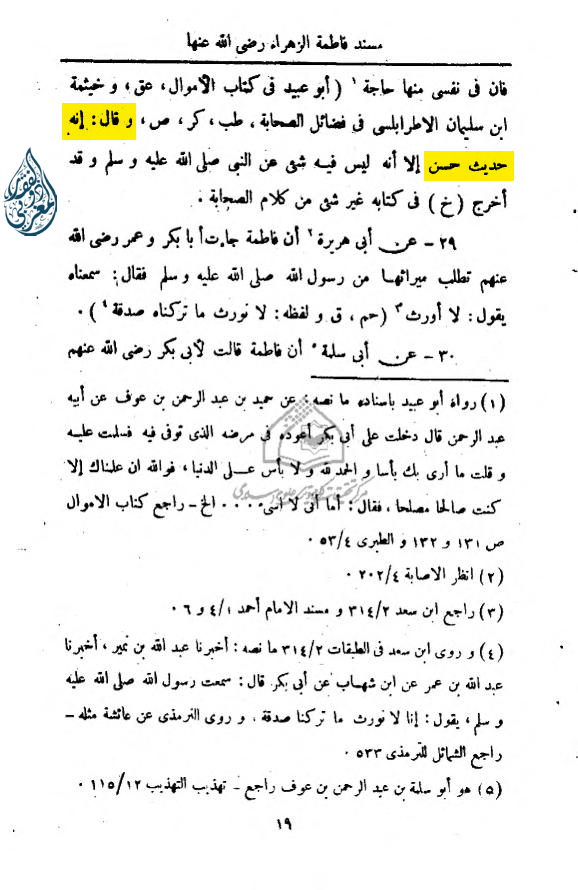 مسند فاطمة الزهراء رضى الله عنها
فان فى نفسى منها حاجة ١ ( أبو عبيد فى كتاب الأموال، عق، و خيثمة
ابن سليمان الاطرابلسى فى فضائل الصحابة، طب، كر، ص، و قال: إنه
حديث حسن إلا أنه ليس فيه شئ عن النبى صلى الله عليه و سلم و قد
أخرج ( خ ) فى كتابه غير شئ من كلام الصحابة .
٢٩ – عن أبى هريرة ٢ أن فاطمة جاءت أبا بكر و عمر رضى الله
عنهم تطلب ميراثها من رسول الله صلى الله عليه و سلم فقال: سمعناه
يقول: لا أورث ٣ (حم، ق و لفظه: لا نورث ما تركناه صدقة ٤ ) .
٣٠ – عن أبى سلمة ٥ أن فاطمة قالت لأبى بكر رضى الله عنهم
(١) رواه أبو عبيد باسناده ما نصه: عن حميد بن عبد الرحمن بن عوف عن أبيه
عبد الرحمن قال دخلت على أبى بكر أعوده فى مرضه الذى توفى فيه فسلمت عليه
و قلت ما أرى بك بأسا و الحمد لله و لا بأس عــلى الدنيا، فوالله ان علمناك إلا
كنت صالحا مصلحا، فقال: أما أنى لا آسى ٠٠٠٠ الخ – راجع كتاب الاموال
ص ١٣١ و ١٣٢ و الطبرى ٥٣/٤ ٠
(٢) انظر الاصابة ٢٠٢/٤ ٠
(٣) راجع ابن سعد ٣١٤/٢ و مسند الامام أحمد ٤/١ و ٦ ٠
(٤) و روى ابن سعد فى الطبقات ٣١٤/٢ ما نصه: أخبرنا عبد الله بن نمير، أخبرنا
عبد الله بن عمر عن ابن شهاب عن أبى بكر قال: سمعت رسول الله صلى الله عليه
و سلم، يقول: إنا لا نورث ما تركنا صدقة . و روى الترمذى عن عائشة مثله –
راجع الشمائل للترمذى ٥٣٣ ٠
(٥) هو أبو سلمة بن عبد الرحمن بن عوف راجع – تهذيب التهذيب ١١٥/١٢ ٠
١٩